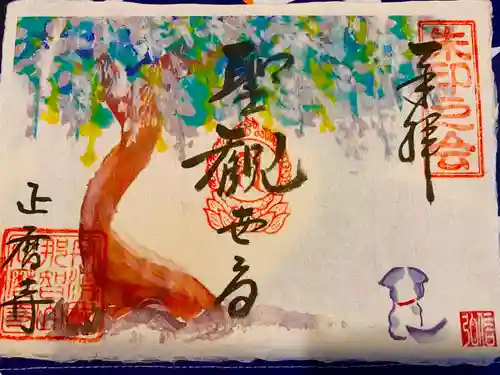 奉拝
朱印之会
聖観世音
正暦寺